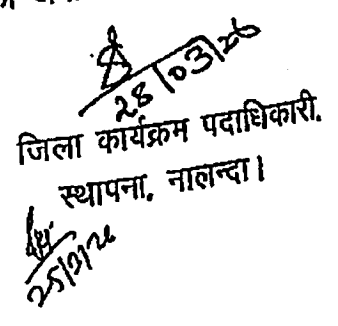 28/03/26
जिला कार्यक्रम पदाधिकारी,
स्थापना, नालन्दा।
25/3/26